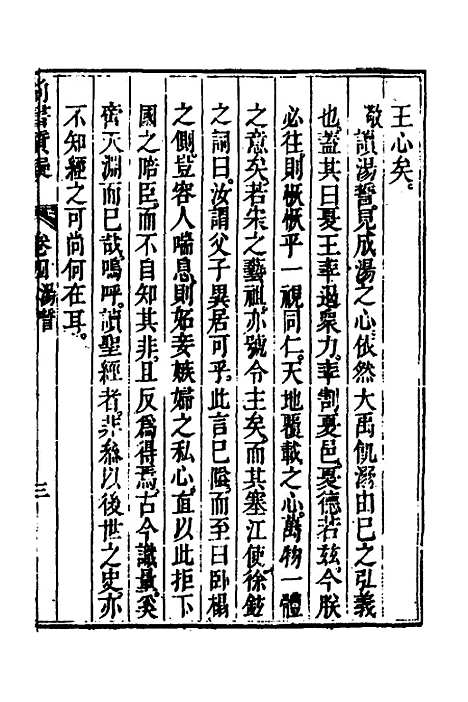 王心矣。
敬讀湯誓。見成湯之心。依然大禹飢溺由己之弘義
也。蓋其曰夏王率遏衆力。率割夏邑。夏德若玆。今朕
必往。則惻惻乎一視同仁。天地覆載之心。萬物一體
之意矣。若宋之藝祖。亦號令主矣。而其塞江使徐鉉
之詞曰。汝謂父子異居可乎。此言已隘。而至曰卧榻
之側。豈容人喘息。則妬妾嫉婦之私心。直以此拒下
國之啼臣。而不自知其非。且反爲得焉。古今識量。奚
啻天淵而已哉。嗚呼。讀聖經者。非叅以後世之史。亦
不知經之可尚何在耳。
尚書質疑
卷四 湯誓
三